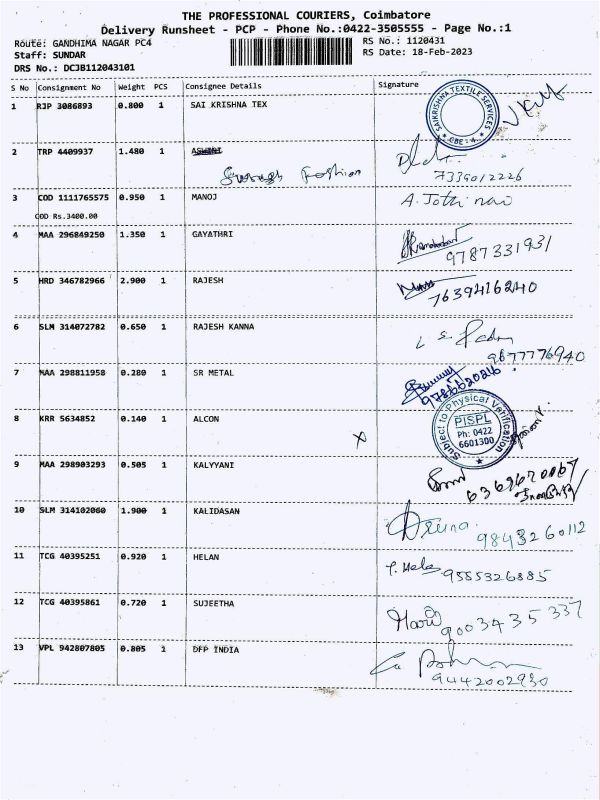 THE PROFESSIONAL COURIERS, Coimbatore
Delivery Runsheet - PCP - Phone No.:0422-3505555 - Page No.:1
Route: GANDHIMA NAGAR PC4 RS No.: 1120431
Staff: SUNDAR RS Date: 18-Feb-2023
DRS No.: DCJB112043101
S No Consignment No Weight PCS Consignee Details Signature
1 RJP 3086893 0.800 1 SAI KRISHNA TEX
SAIKRISHNA TEXTILE SERVICES
CBE - 4.
2 TRP 4409937 1.480 1
Fashion
7339012226
3 COD 1111765575 0.950 1 MANOJ A. Jothi
COD Rs.3400.00
4 MAA 296849250 1.350 1 GAYATHRI
9787331931
5 HRD 346782966 2.900 1 RAJESH
7639416240
6 SLM 314072782 0.650 1 RAJESH KANNA
9877776940
7 MAA 298811958 0.280 1 SR METAL
8 KRR 5634852 0.140 1 ALCON X
Subject to Physical Verification
PISPL
Ph: 0422
6601300
9 MAA 298903293 0.505 1 KALYYANI
10 SLM 314102060 1.900 1 KALIDASAN
Aruna.
9843260112
11 TCG 40395251 0.920 1 HELAN
9585326885
12 TCG 40395861 0.720 1 SUJEETHA
9003435337
13 VPL 942807805 0.805 1 DFP INDIA
9442002930